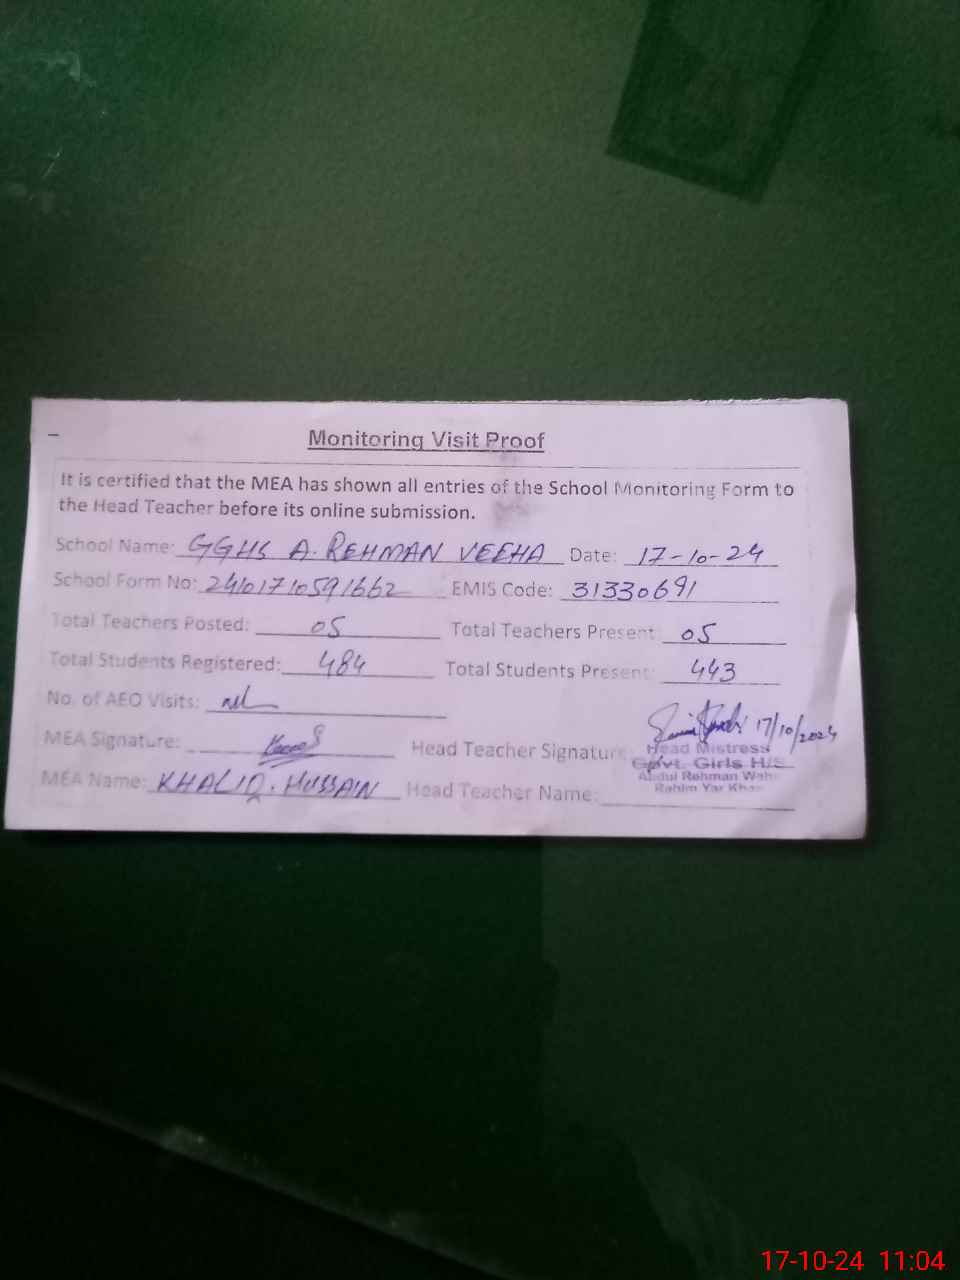 Monitoring Visit Proof
It is certified that the MEA has shown all entries of the School Monitoring Form to
the Head Teacher before its online submission.
School Name: GGHS A. REHMAN VEEHA Date: 17-10-24
School Form No: 24101710591662 EMIS Code: 31330691
Total Teachers Posted: 05 Total Teachers Present: 05
Total Students Registered: 484 Total Students Present: 443
No. of AEO Visits: nil
MEA Signature: Head Teacher Signature: 17/10/2024
Head Mistress
Govt. Girls H/S
Abdul Rehman
Rahim Yar Khan
MEA Name: KHALIQ. HUSSAIN Head Teacher Name:
17-10-24 11:04